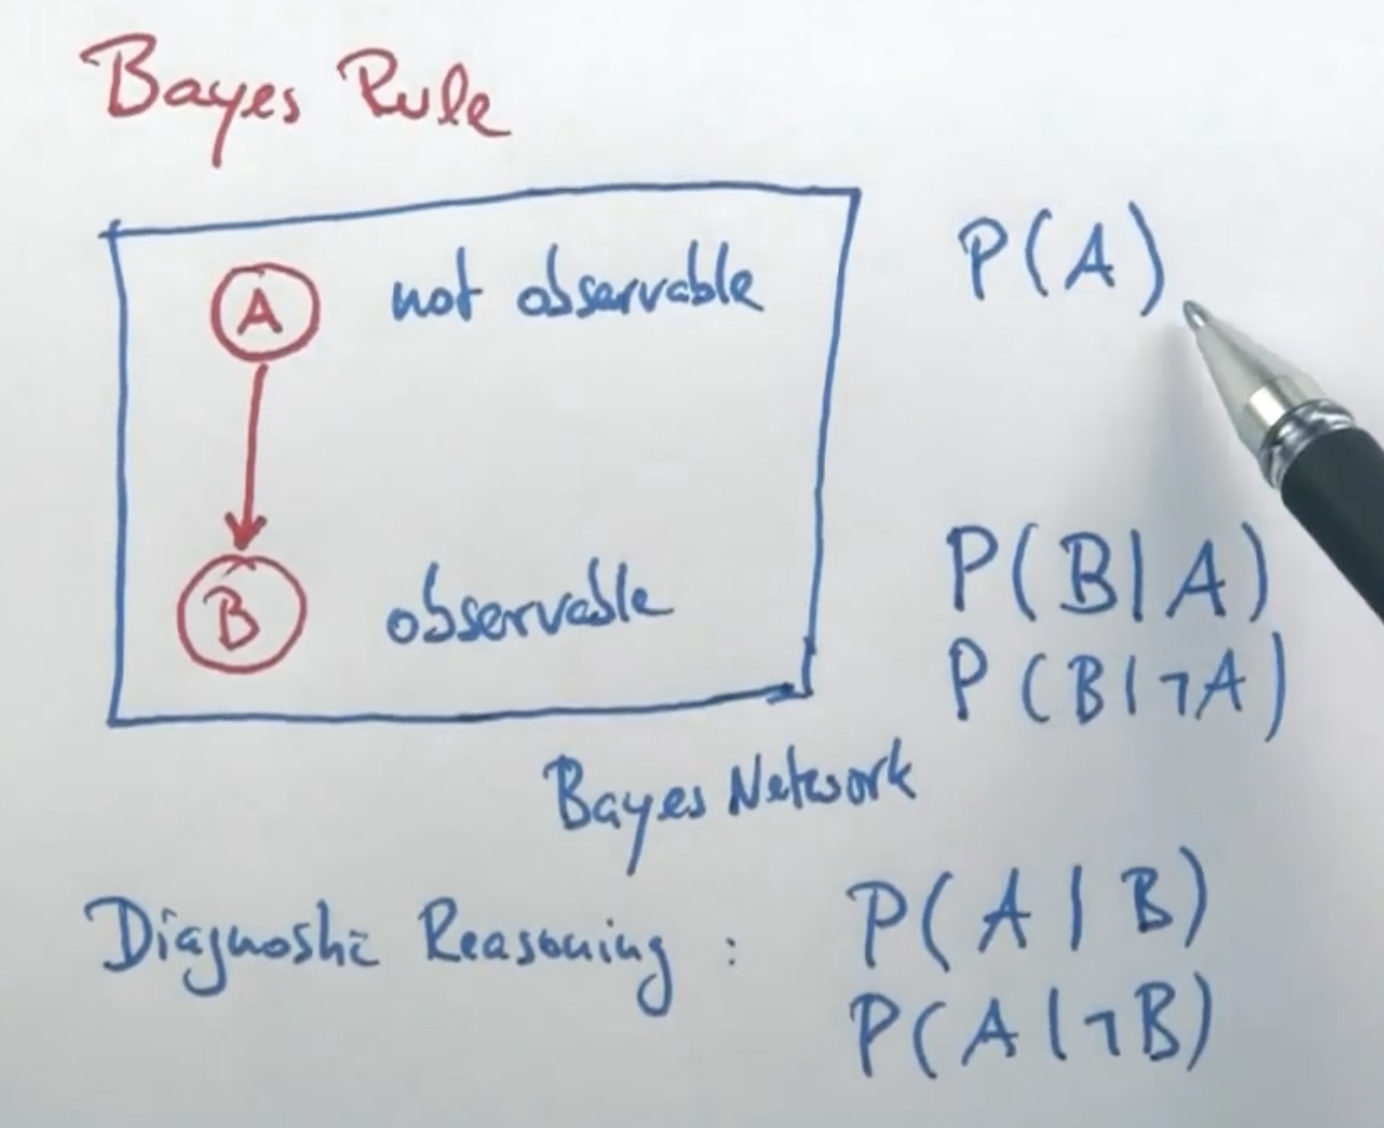 Bayes Rule
A not observable
P(A)
B observable
P(B|A)
P(B|¬A)
Bayes Network
Diagnostic Reasoning : P(A|B)
P(A|¬B)